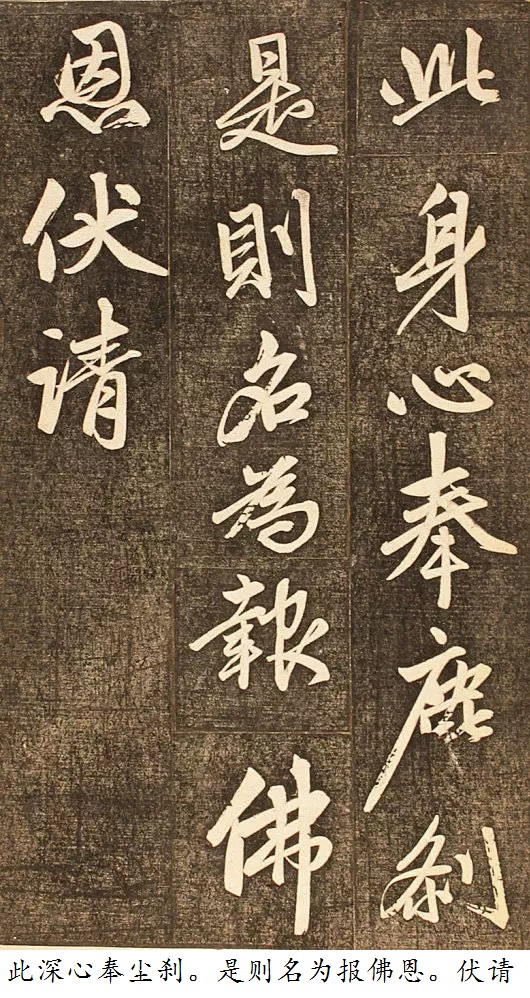 此身心奉塵刹
是則名為報佛
恩伏请
此深心奉尘刹。是则名为报佛恩。伏请